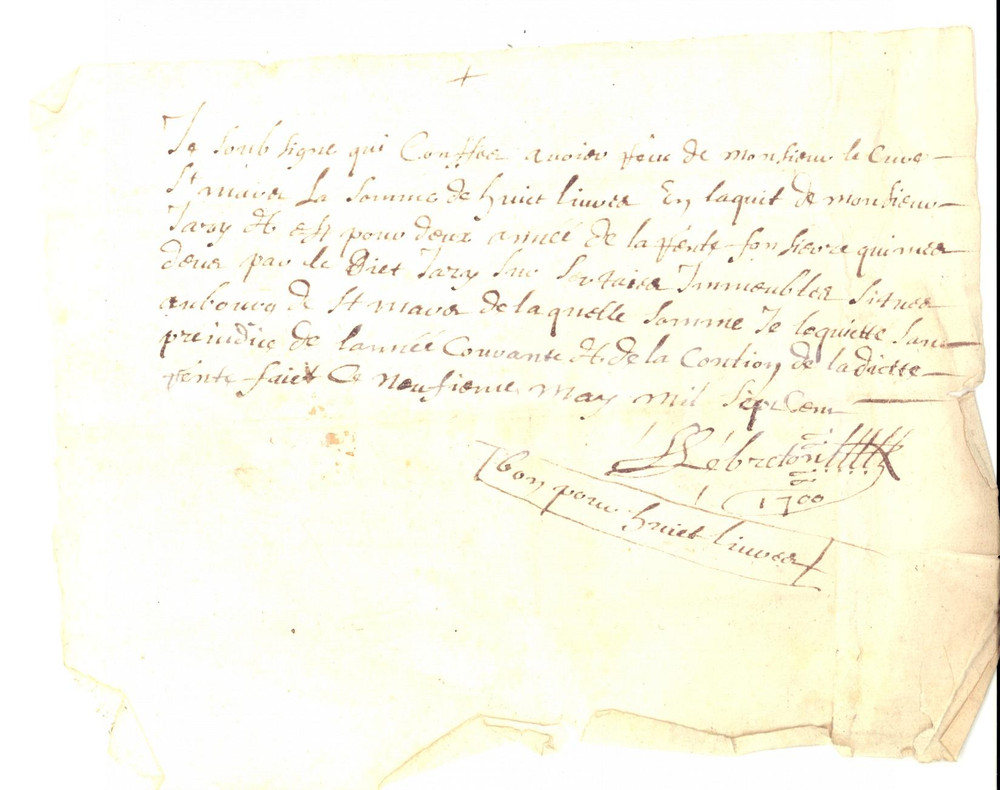 +
Je soub signe qui Confesse avoier Receu de monsieur le Cure
St maure La somme de huict livres En laquit de monsieur
Jary & est pour deux année de la Rente fonsiere qui mest
deue par le Diet Jary sur sertaies Immeubles situes
au bourg de St maure de laquelle somme Je le quitte sans
preiudice de lannée Couvante & de la Contion de la dicte
Rente faict Ce neufieme may mil sept Cent
Lebreton
1700
bon pour huict livres